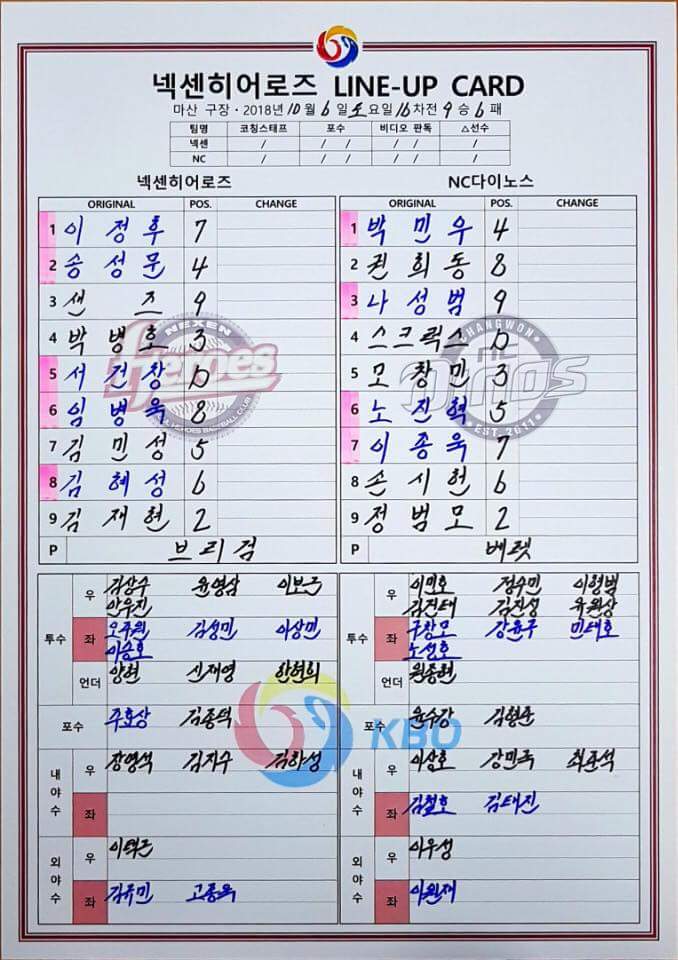 넥센히어로즈 LINE-UP CARD
마산 구장 · 2018년 10월 6일 토요일 16차전 9승 6패
팀명 코칭스태프 포수 비디오 판독 △선수
넥센 / / / / / /
NC / / / / / /
넥센히어로즈 NC다이노스
ORIGINAL POS. CHANGE ORIGINAL POS. CHANGE
1 이정후 7 1 박민우 4
2 송성문 4 2 권희동 8
3 샌즈 9 3 나성범 9
4 박병호 3 4 스크럭스 D
5 서건창 D 5 모창민 3
6 임병욱 8 6 노진혁 5
7 김민성 5 7 이종욱 7
8 김혜성 6 8 손시헌 6
9 김재현 2 9 정범모 2
P 브리검 P 베렛
NEXEN Heroes HEROES BASEBALL CLUB
CHANGWON NC DINOS EST. 2011
투수 우 김상수 윤영삼 이보근 투수 우 이민호 정수민 이형범
안우진 김건태 김진성 유원상
좌 오주원 김성민 이상민 좌 구창모 강윤구 민태호
이승호 노성호
언더 양현 신재영 한현희 언더 원종현
포수 주효상 김종덕 포수 윤수강 김형준
KBO
내야수 우 장영석 김지수 김하성 내야수 우 이상호 강민국 최준석
좌 좌 김철호 김태진
외야수 우 이택근 외야수 우 이우성
좌 김규민 고종욱 좌 이원재